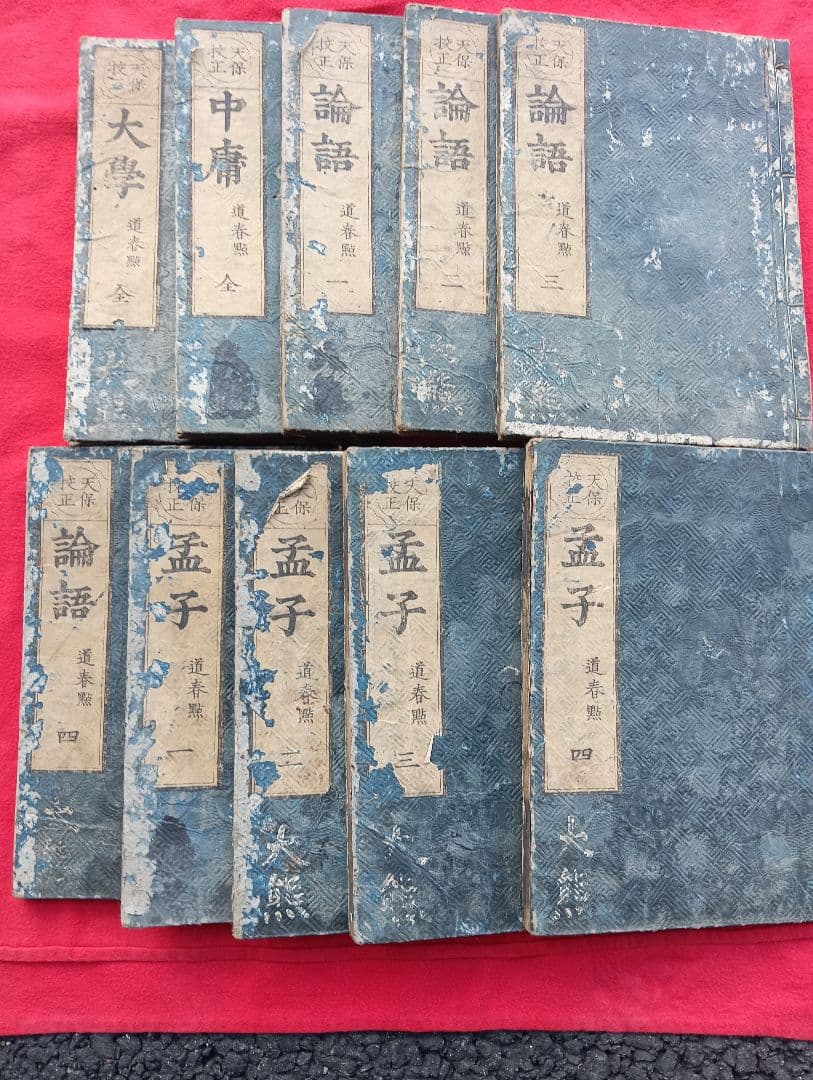 天保
校正
大學
道春點
全
天保
校正
中庸
道春點
全
天保
校正
論語
道春點
一
天保
校正
論語
道春點
二
天保
校正
論語
道春點
三
天保
校正
論語
道春點
四
保
校正
孟子
道春點
一
保
正
孟子
道春點
二
大熊
天保
校正
孟子
道春點
三
熊
天保
校正
孟子
道春點
四
大熊